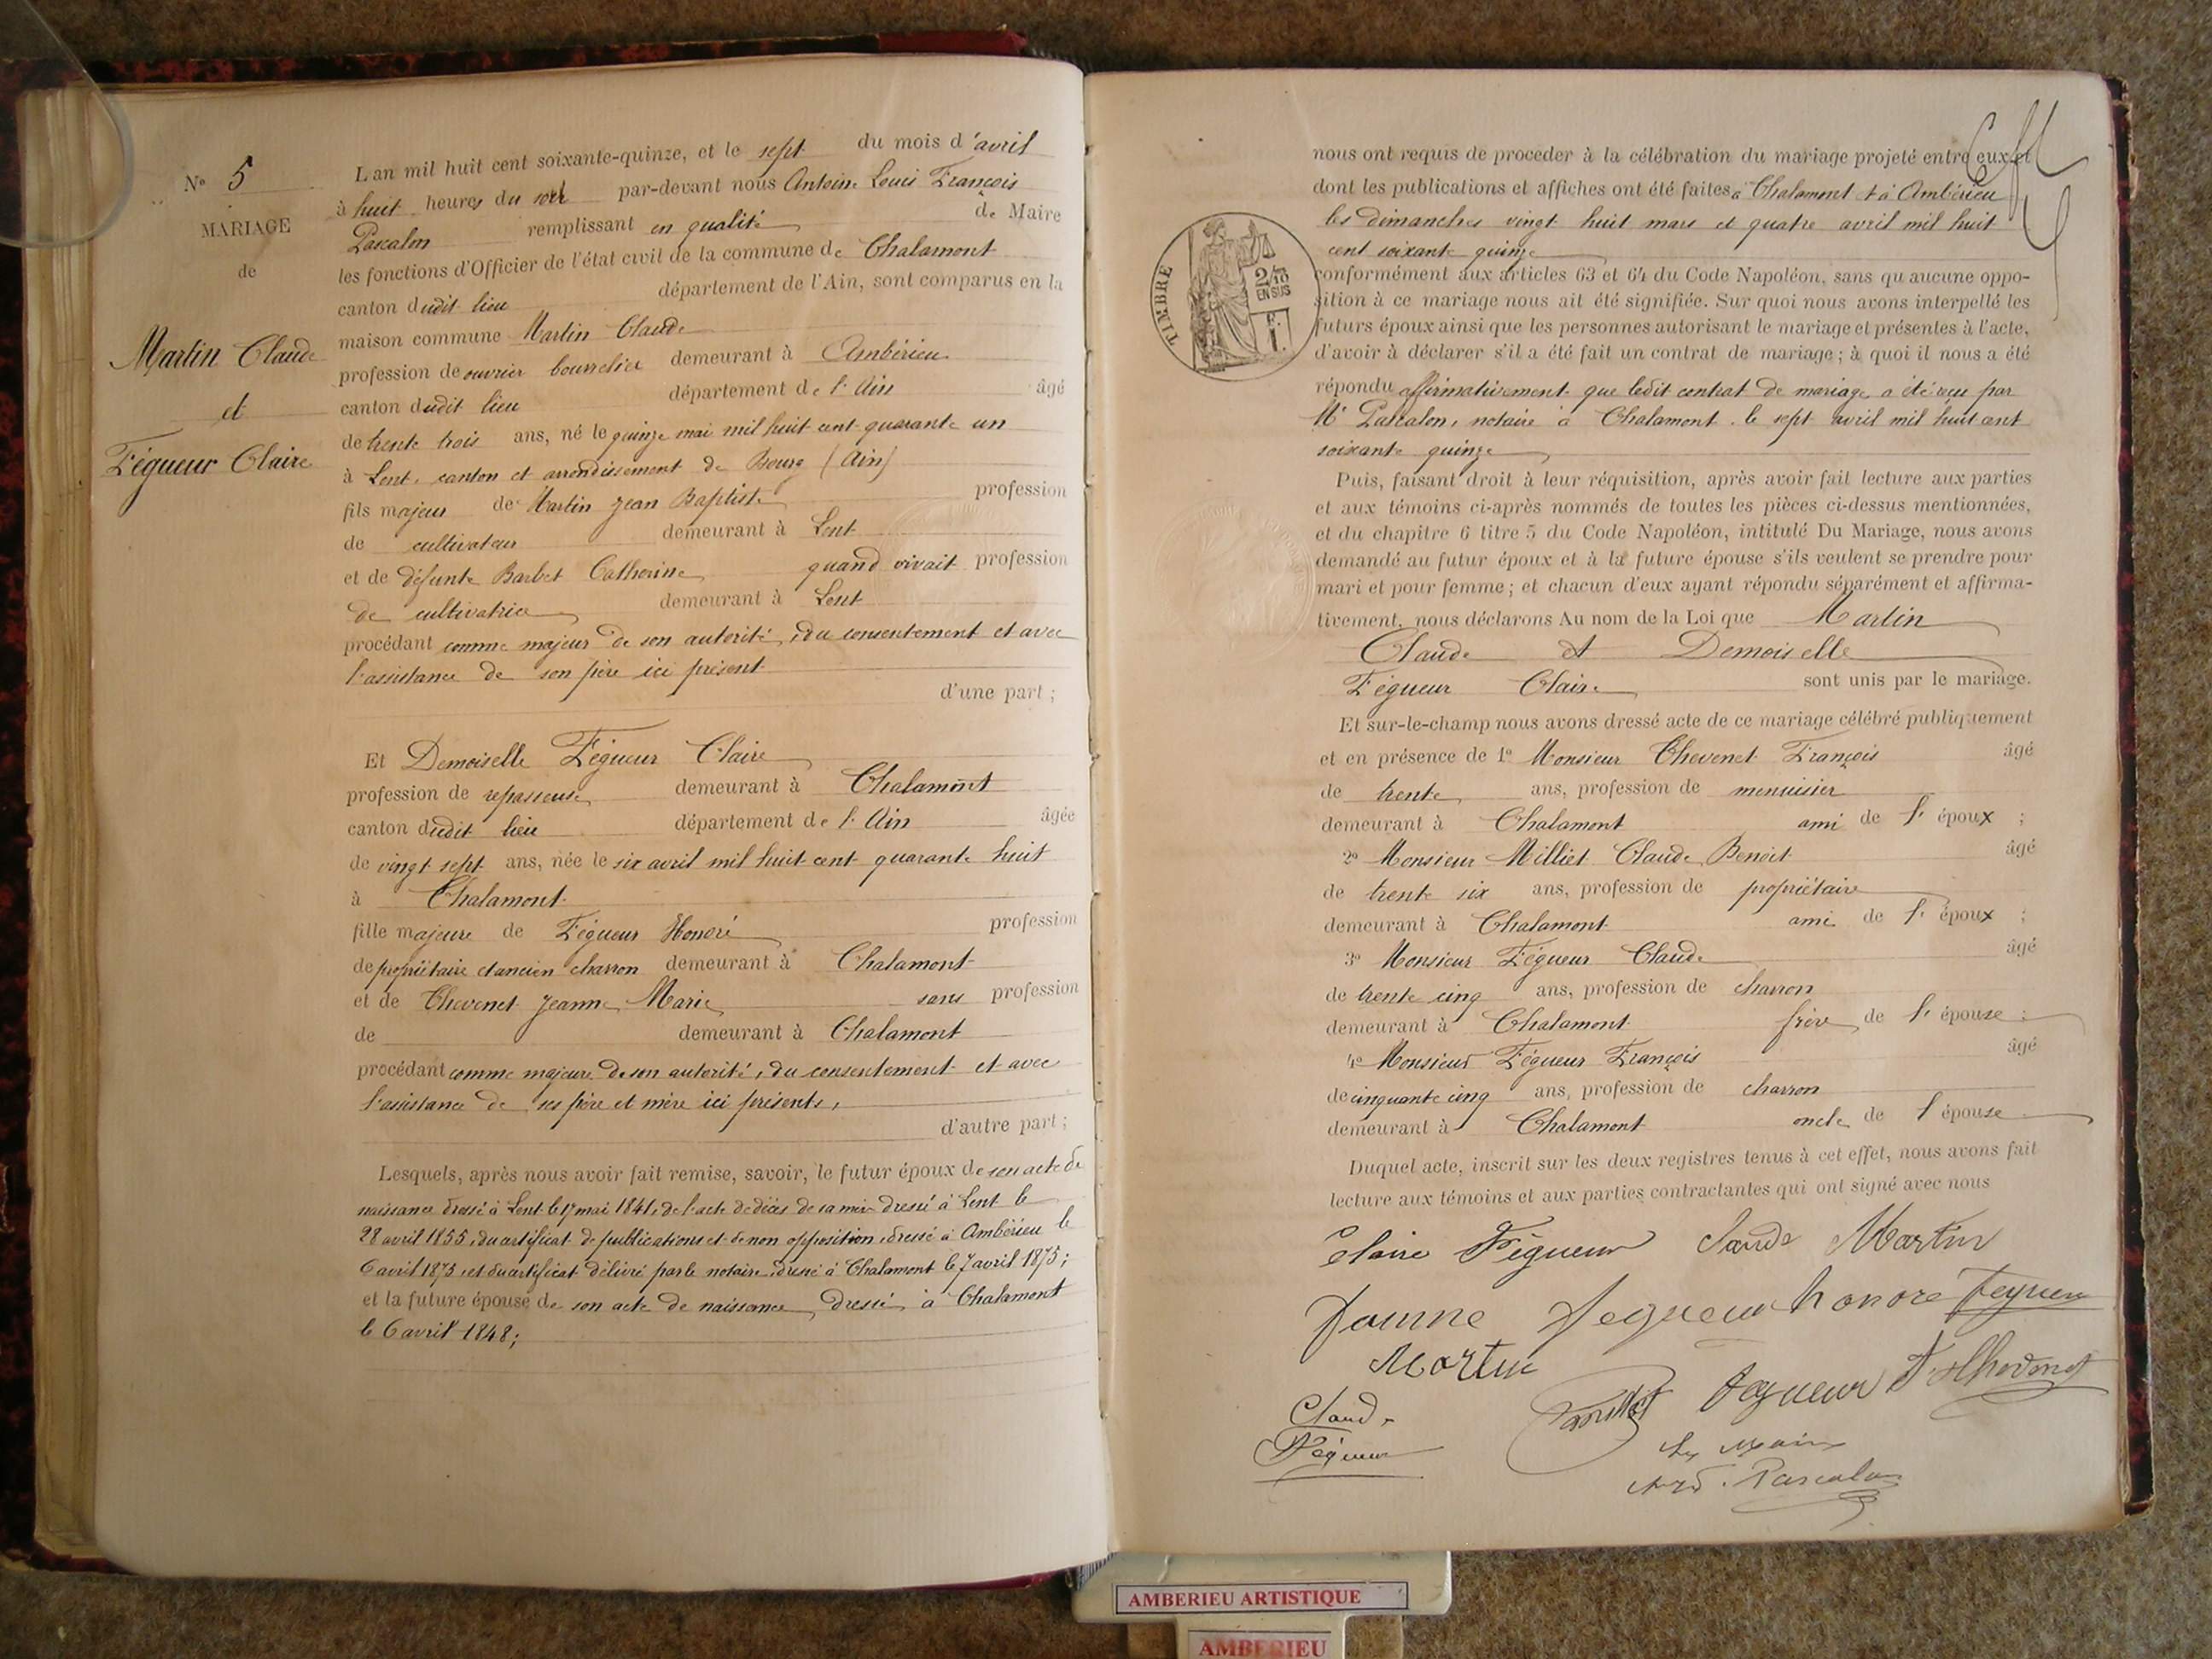 N° 5
MARIAGE
de
Martin Claude
et
Fégueur Claire
L an mil huit cent soixante-quinze, et le sept du mois d'avril
à huit heures du soir par-devant nous Antoine Louis François
Pascalon remplissant en qualité de Maire
les fonctions d'Officier de l'état civil de la commune de Chalamont
canton dudit lieu département de l'Ain, sont comparus en la
maison commune Martin Claude
profession de ouvrier bourrelier demeurant à Ambérieu
canton dudit lieu département de l'Ain âgé
de trente trois ans, né le quinze mai mil huit cent quarante un
à Lent, canton et arrondissement de Bourg (Ain)
fils majeur de Martin Jean Baptiste profession
de cultivateur demeurant à Lent
et de défunte Barbet Catherine quand vivait profession
de cultivatrice demeurant à Lent
procédant comme majeur de son autorité, du consentement et avec
l'assistance de son père ici présent
d'une part ;
Et Demoiselle Fégueur Claire
profession de repasseuse demeurant à Chalamont
canton dudit lieu département de l'Ain âgée
de vingt sept ans, née le six avril mil huit cent quarante huit
à Chalamont
fille majeure de Fégueur Honoré profession
de propriétaire et ancien charron demeurant à Chalamont
et de Chevenet Jeanne Marie sans profession
de demeurant à Chalamont
procédant comme majeure de son autorité, du consentement et avec
l'assistance de ses père et mère ici présents,
d'autre part ;
Lesquels, après nous avoir fait remise, savoir, le futur époux de son acte de
naissance dressé à Lent le 17 mai 1841, de l'acte de décès de sa mère dressé à Lent le
28 avril 1855, du certificat de publications et de non opposition, dressé à Ambérieu le
6 avril 1875, et du certificat délivré par le notaire, dressé à Chalamont le 7 avril 1875;
et la future épouse de son acte de naissance, dressé à Chalamont
le 6 avril 1848;
nous ont requis de proceder à la célébration du mariage projeté entre eux et
dont les publications et affiches ont été faites à Chalamont & à Ambérieu
les dimanches vingt huit mars et quatre avril mil huit
cent soixante quinze
conformément aux articles 63 et 64 du Code Napoléon, sans qu aucune oppo-
sition à ce mariage nous ait été signifiée. Sur quoi nous avons interpellé les
futurs époux ainsi que les personnes autorisant le mariage et présentes à l'acte,
d'avoir à déclarer s'il a été fait un contrat de mariage ; à quoi il nous a été
répondu affirmativement que ledit contrat de mariage a été reçu par
Me Pascalon, notaire à Chalamont le sept avril mil huit cent
soixante quinze
TIMBRE
2/10
EN SUS
Puis, faisant droit à leur réquisition, après avoir fait lecture aux parties
et aux témoins ci-après nommés de toutes les pièces ci-dessus mentionnées,
et du chapitre 6 titre 5 du Code Napoléon, intitulé Du Mariage, nous avons
demandé au futur époux et à la future épouse s'ils veulent se prendre pour
mari et pour femme ; et chacun d'eux ayant répondu séparément et affirma-
tivement, nous déclarons Au nom de la Loi que Martin
Claude et Demoiselle
Fégueur Claire sont unis par le mariage.
Et sur-le-champ nous avons dressé acte de ce mariage célébré publiquement
et en présence de 1° Monsieur Chevenet François âgé
de trente ans, profession de menuisier
demeurant à Chalamont ami de l'époux ;
2° Monsieur Milliet Claude Benoit âgé
de trente six ans, profession de propriétaire
demeurant à Chalamont ami de l'époux ;
3° Monsieur Fégueur Claude âgé
de trente cinq ans, profession de charron
demeurant à Chalamont frère de l'épouse ;
4° Monsieur Fégueur François âgé
de cinquante cinq ans, profession de charron
demeurant à Chalamont oncle de l'épouse
Duquel acte, inscrit sur les deux registres tenus à cet effet, nous avons fait
lecture aux témoins et aux parties contractantes qui ont signé avec nous
Claire Fégueur Claude Martin
Fegueur honoré Fegueur
Martin
Fegueur F. Chevenet
Claude
Fégueur
Le Maire
Pascalon
AMBERIEU ARTISTIQUE
AMBERIEU